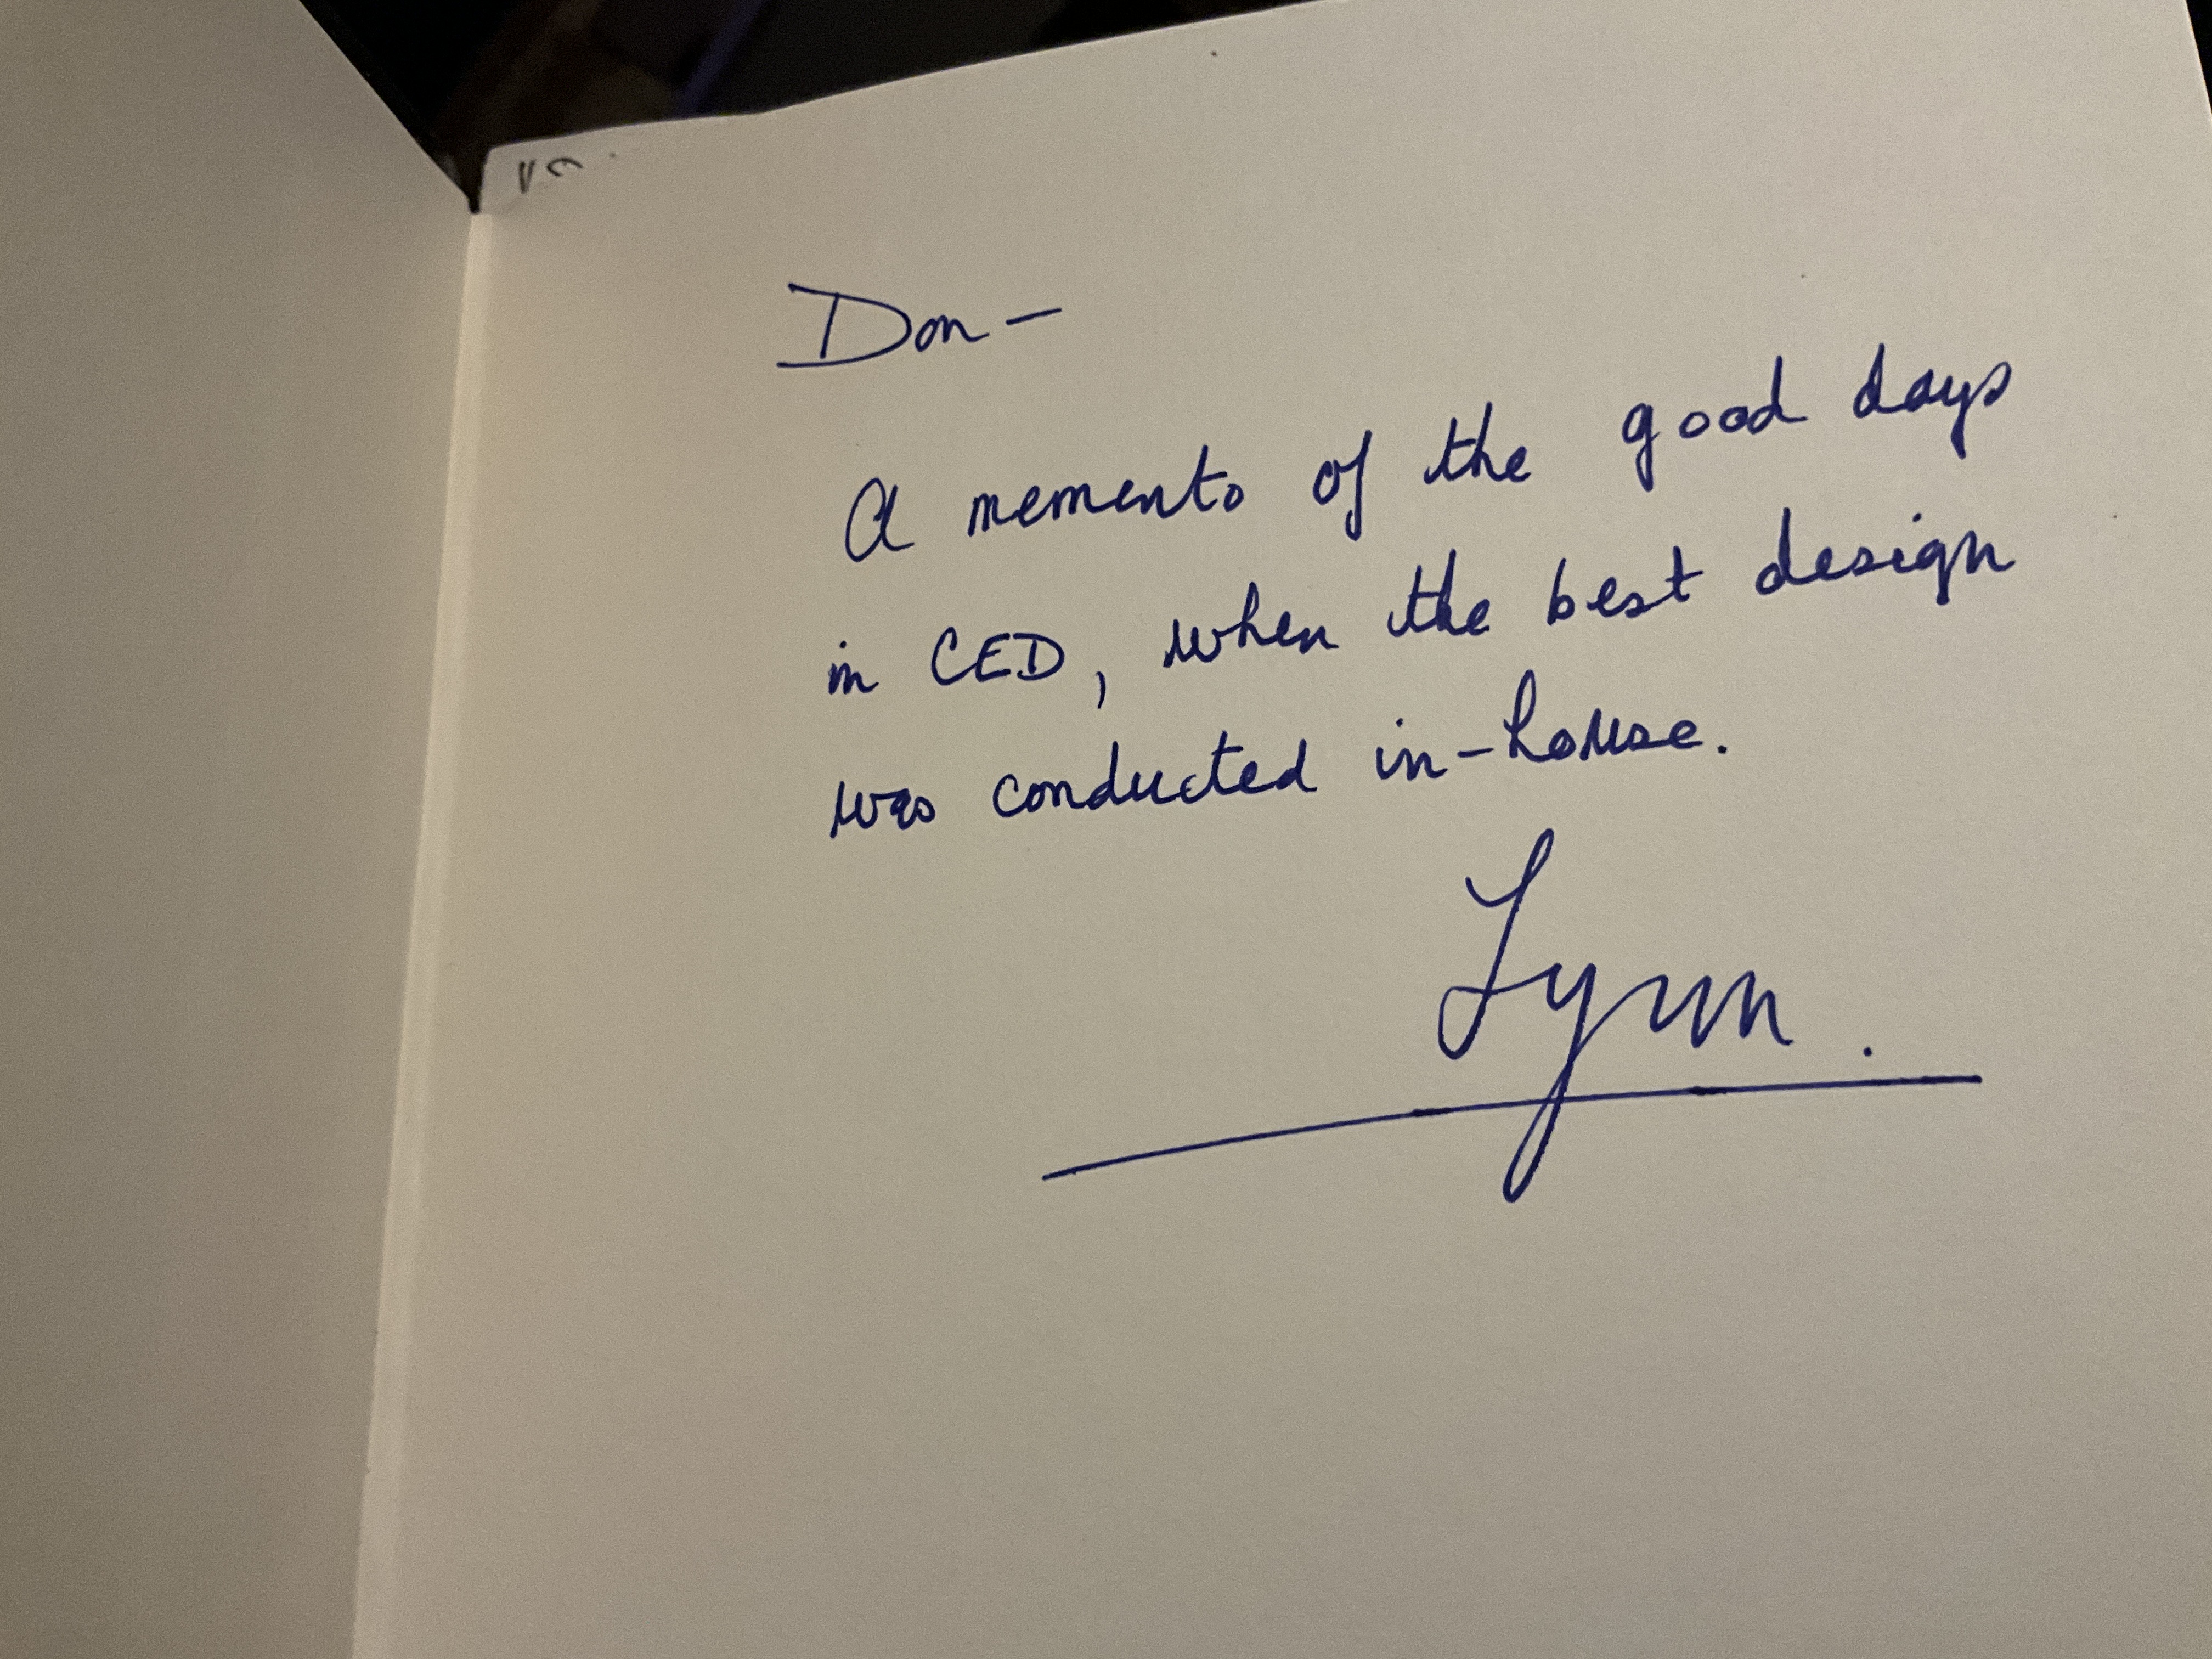 Don —
A memento of the good days
in CED, when the best design
was conducted in-house.
Lynn.